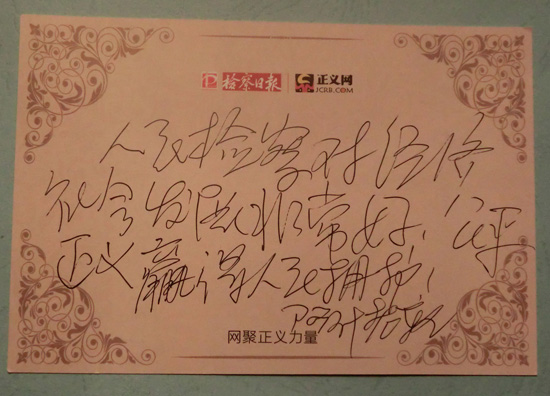 检察日报 正义网
JCRB.COM
人民检察对经济
社会发展非常好，公平
正义赢得人民拥护！
网聚正义力量